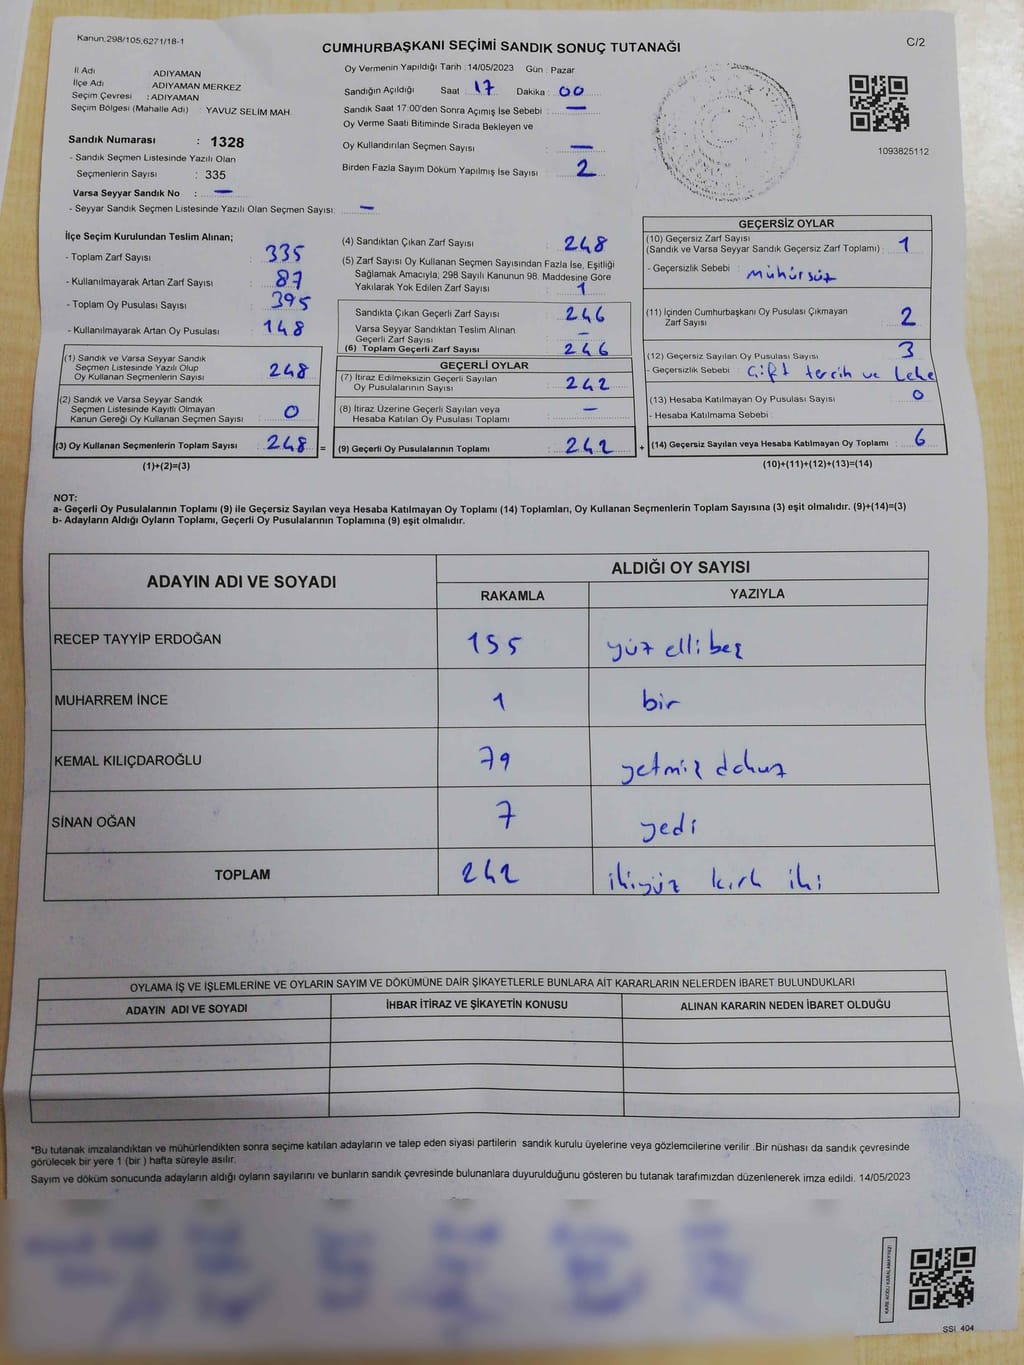 Kanun.298/105,6271/18-1
C/2
CUMHURBAŞKANI SEÇİMİ SANDIK SONUÇ TUTANAĞI
İl Adı ADIYAMAN
İlçe Adı ADIYAMAN MERKEZ
Seçim Çevresi : ADIYAMAN
Seçim Bölgesi (Mahalle Adı) : YAVUZ SELİM MAH.
Sandık Numarası : 1328
- Sandık Seçmen Listesinde Yazılı Olan
Seçmenlerin Sayısı : 335
Varsa Seyyar Sandık No : —
- Seyyar Sandık Seçmen Listesinde Yazılı Olan Seçmen Sayısı: —
Oy Vermenin Yapıldığı Tarih : 14/05/2023 Gün : Pazar
Sandığın Açıldığı Saat 17 Dakika : 00
Sandık Saat 17:00'den Sonra Açımış İse Sebebi : —
Oy Verme Saati Bitiminde Sırada Bekleyen ve
Oy Kullandırılan Seçmen Sayısı : —
Birden Fazla Sayım Döküm Yapılmış İse Sayısı : 2
1093825112
İlçe Seçim Kurulundan Teslim Alınan;
- Toplam Zarf Sayısı : 335
- Kullanılmayarak Artan Zarf Sayısı : 87
- Toplam Oy Pusulası Sayısı : 395
- Kullanılmayarak Artan Oy Pusulası : 148
(1) Sandık ve Varsa Seyyar Sandık
Seçmen Listesinde Yazılı Olup
Oy Kullanan Seçmenlerin Sayısı : 248
(2) Sandık ve Varsa Seyyar Sandık
Seçmen Listesinde Kayıtlı Olmayan
Kanun Gereği Oy Kullanan Seçmen Sayısı : 0
(3) Oy Kullanan Seçmenlerin Toplam Sayısı : 248 =
(1)+(2)=(3)
(4) Sandıktan Çıkan Zarf Sayısı : 248
(5) Zarf Sayısı Oy Kullanan Seçmen Sayısından Fazla İse, Eşitliği
Sağlamak Amacıyla; 298 Sayılı Kanunun 98. Maddesine Göre
Yakılarak Yok Edilen Zarf Sayısı : 1
Sandıkta Çıkan Geçerli Zarf Sayısı : 246
Varsa Seyyar Sandıktan Teslim Alınan
Geçerli Zarf Sayısı : —
(6) Toplam Geçerli Zarf Sayısı : 246
GEÇERLİ OYLAR
(7) İtiraz Edilmeksizin Geçerli Sayılan
Oy Pusulalarının Sayısı : 242
(8) İtiraz Üzerine Geçerli Sayılan veya
Hesaba Katılan Oy Pusulası Toplamı : —
(9) Geçerli Oy Pusulalarının Toplamı : 242 +
GEÇERSİZ OYLAR
(10) Geçersiz Zarf Sayısı
(Sandık ve Varsa Seyyar Sandık Geçersiz Zarf Toplamı) : 1
- Geçersizlik Sebebi : mühürsüz
(11) İçinden Cumhurbaşkanı Oy Pusulası Çıkmayan
Zarf Sayısı : 2
(12) Geçersiz Sayılan Oy Pusulası Sayısı : 3
- Geçersizlik Sebebi : Çift tercih ve Leke
(13) Hesaba Katılmayan Oy Pusulası Sayısı : 0
- Hesaba Katılmama Sebebi :
(14) Geçersiz Sayılan veya Hesaba Katılmayan Oy Toplamı : 6
(10)+(11)+(12)+(13)=(14)
NOT:
a- Geçerli Oy Pusulalarının Toplamı (9) ile Geçersiz Sayılan veya Hesaba Katılmayan Oy Toplamı (14) Toplamları, Oy Kullanan Seçmenlerin Toplam Sayısına (3) eşit olmalıdır. (9)+(14)=(3)
b- Adayların Aldığı Oyların Toplamı, Geçerli Oy Pusulalarının Toplamına (9) eşit olmalıdır.
ADAYIN ADI VE SOYADI ALDIĞI OY SAYISI
RAKAMLA YAZIYLA
RECEP TAYYİP ERDOĞAN 155 yüz elli beş
MUHARREM İNCE 1 bir
KEMAL KILIÇDAROĞLU 79 yetmiş dokuz
SİNAN OĞAN 7 yedi
TOPLAM 242 ikiyüz kırk iki
OYLAMA İŞ VE İŞLEMLERİNE VE OYLARIN SAYIM VE DÖKÜMÜNE DAİR ŞİKAYETLERLE BUNLARA AİT KARARLARIN NELERDEN İBARET BULUNDUKLARI
ADAYIN ADI VE SOYADI İHBAR İTİRAZ VE ŞİKAYETİN KONUSU ALINAN KARARIN NEDEN İBARET OLDUĞU
*Bu tutanak imzalandıktan ve mühürlendikten sonra seçime katılan adayların ve talep eden siyasi partilerin sandık kurulu üyelerine veya gözlemcilerine verilir .Bir nüshası da sandık çevresinde
görülecek bir yere 1 (bir ) hafta süreyle asılır.
Sayım ve döküm sonucunda adayların aldığı oyların sayılarını ve bunların sandık çevresinde bulunanlara duyurulduğunu gösteren bu tutanak tarafımızdan düzenlenerek imza edildi. 14/05/2023
KARE KODU KARALAMAYINIZ!
SSI 404